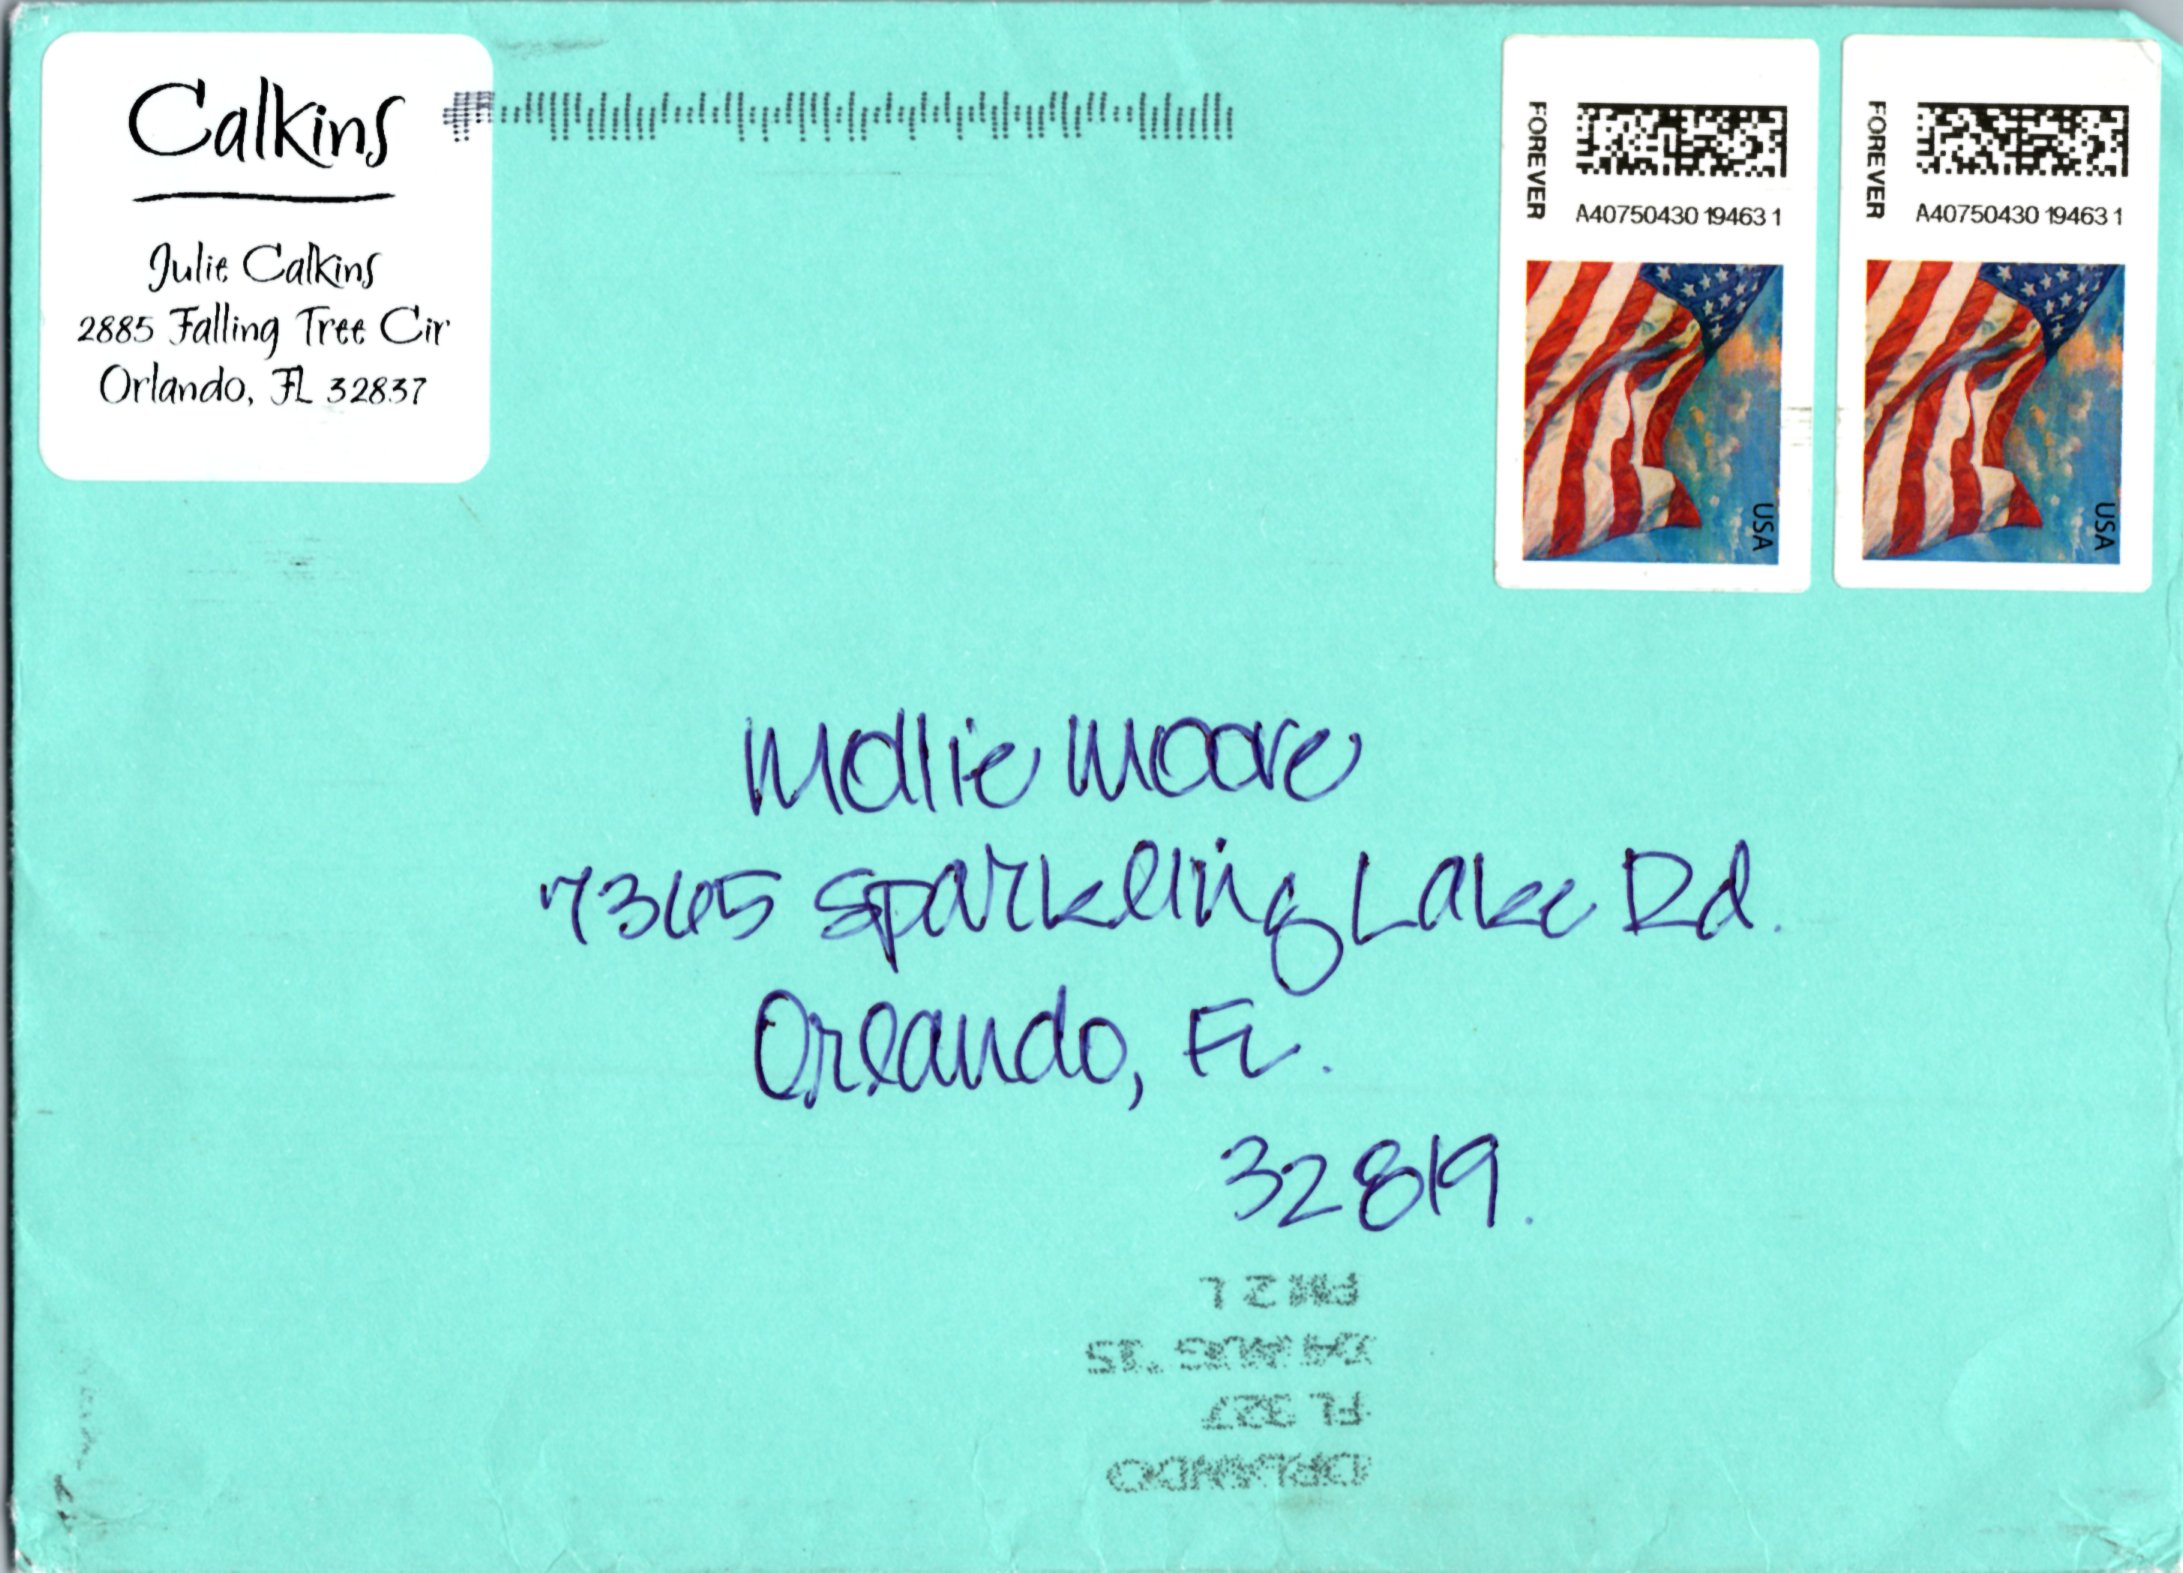 Calkins
Julie Calkins
2885 Falling Tree Cir
Orlando, FL 32837
FOREVER
A40750430 194631
USA
FOREVER
A40750430 194631
USA
Mollie Moore
7365 Sparkling Lake Rd.
Orlando, FL.
32819.
ORLANDO
FL 327
24 AUG '15
PM 2 L